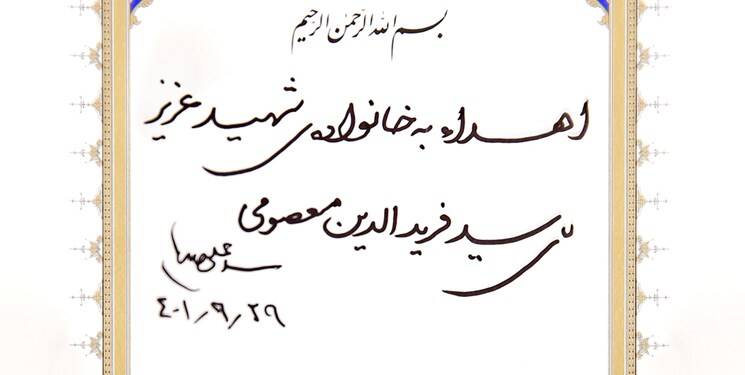 بسم الله الرحمن الرحیم
اهداء به خانواده‌ی شهید عزیز
سید فریدالدین معصومی
۴۰۱/۹/۲۹